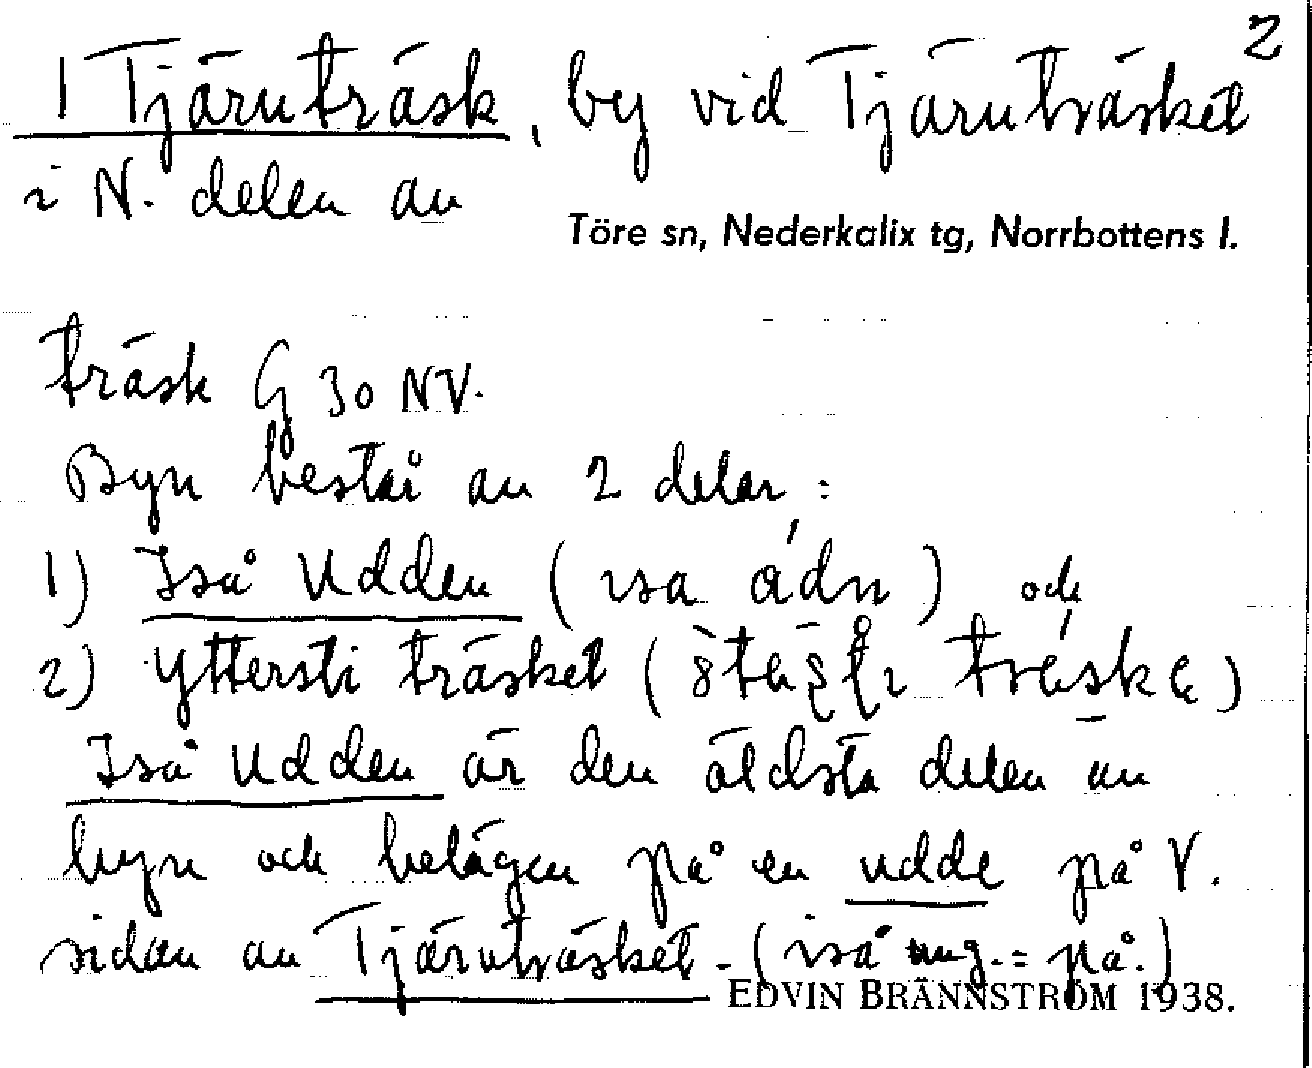 2
1 Tjärnträsk, by vid Tjärnträsket
i N. delen av
Töre sn, Nederkalix tg, Norrbottens l.
träsk G 30 NV.
Byn består av 2 delar:
1) Iså Udden (ısa ádn) och
2) Yttersti träsket (
Iså Udden är den äldsta delen av
byn och belägen på en udde på V.
sidan av Tjärnträsket. (iså ung. = på.)
EDVIN BRÄNNSTRÖM 1938.